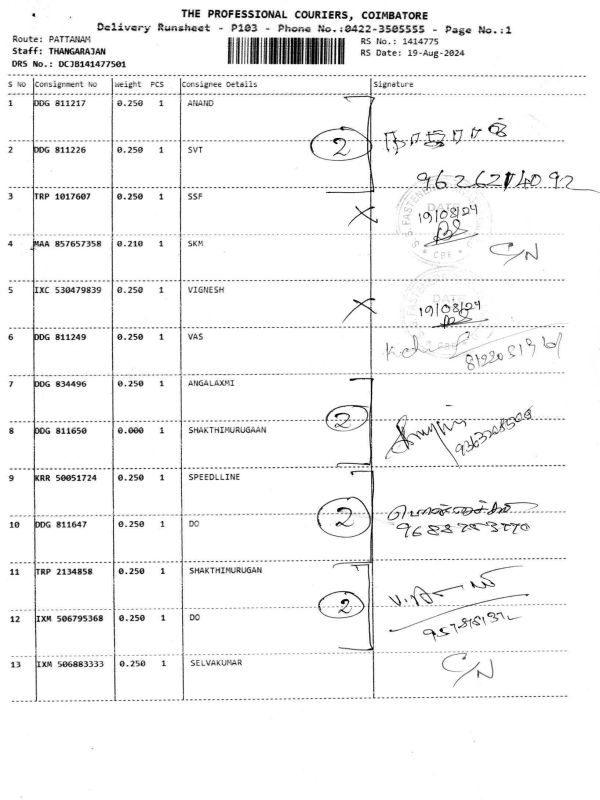 THE PROFESSIONAL COURIERS, COIMBATORE
Delivery Runsheet - P103 - Phone No.:0422-3505555 - Page No.:1
Route: PATTANAM
Staff: THANGARAJAN
DRS No.: DCJB141477501
RS No.: 1414775
RS Date: 19-Aug-2024
S No Consignment No Weight PCS Consignee Details Signature
1 DDG 811217 0.250 1 ANAND
2 DDG 811226 0.250 1 SVT
2
9626214092
3 TRP 1017607 0.250 1 SSF
X 19/08/24
4 MAA 857657358 0.210 1 SKM C/N
5 IXC 530479839 0.250 1 VIGNESH
X 19/08/24
6 DDG 811249 0.250 1 VAS
7 DDG 834496 0.250 1 ANGALAXMI
8 DDG 811650 0.000 1 SHAKTHIMURUGAAN
2
9 KRR 50051724 0.250 1 SPEEDLLINE
10 DDG 811647 0.250 1 DO
2
11 TRP 2134858 0.250 1 SHAKTHIMURUGAN
12 IXM 506795368 0.250 1 DO
2
13 IXM 506883333 0.250 1 SELVAKUMAR C/N